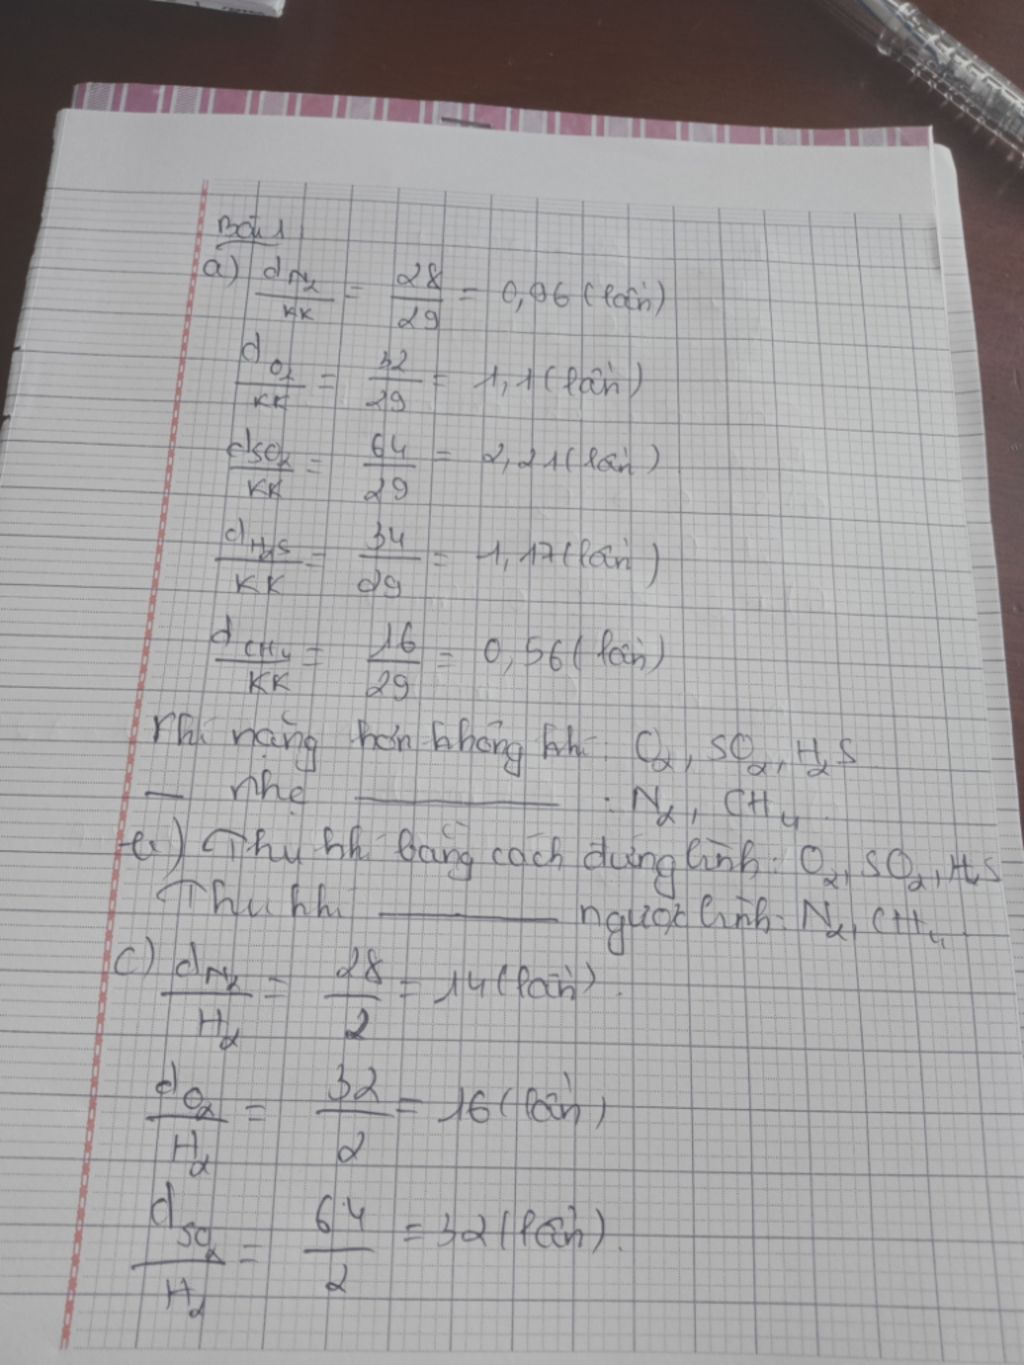 Bài 1
a) dN₂/KK = 28/29 = 0,96 (lần)
dO₂/KK = 32/29 = 1,1 (lần)
dSO₂/KK = 64/29 = 2,21 (lần)
dH₂S/KK = 34/29 = 1,17 (lần)
dCH₄/KK = 16/29 = 0,56 (lần)
Khí nặng hơn không khí: O₂, SO₂, H₂S
— nhẹ ———— : N₂, CH₄
b) Thu khí bằng cách đứng bình: O₂, SO₂, H₂S
Thu khí ———— ngược bình: N₂, CH₄
c) dN₂/H₂ = 28/2 = 14 (lần).
dO₂/H₂ = 32/2 = 16 (lần)
dSO₂/H₂ = 64/2 = 32 (lần).